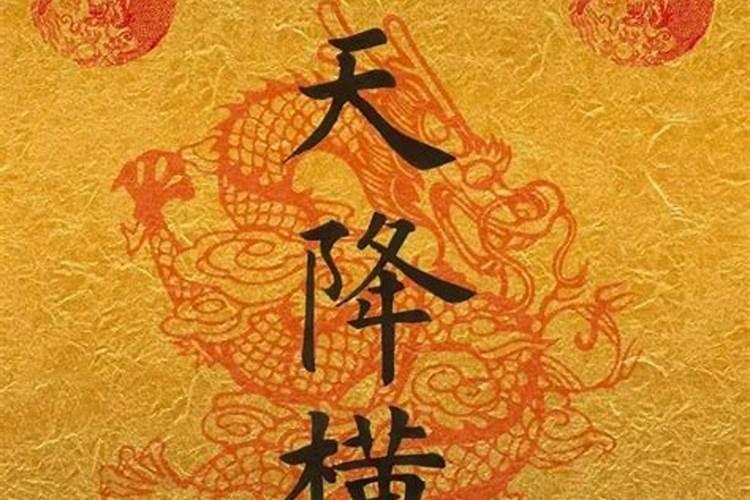 天降横